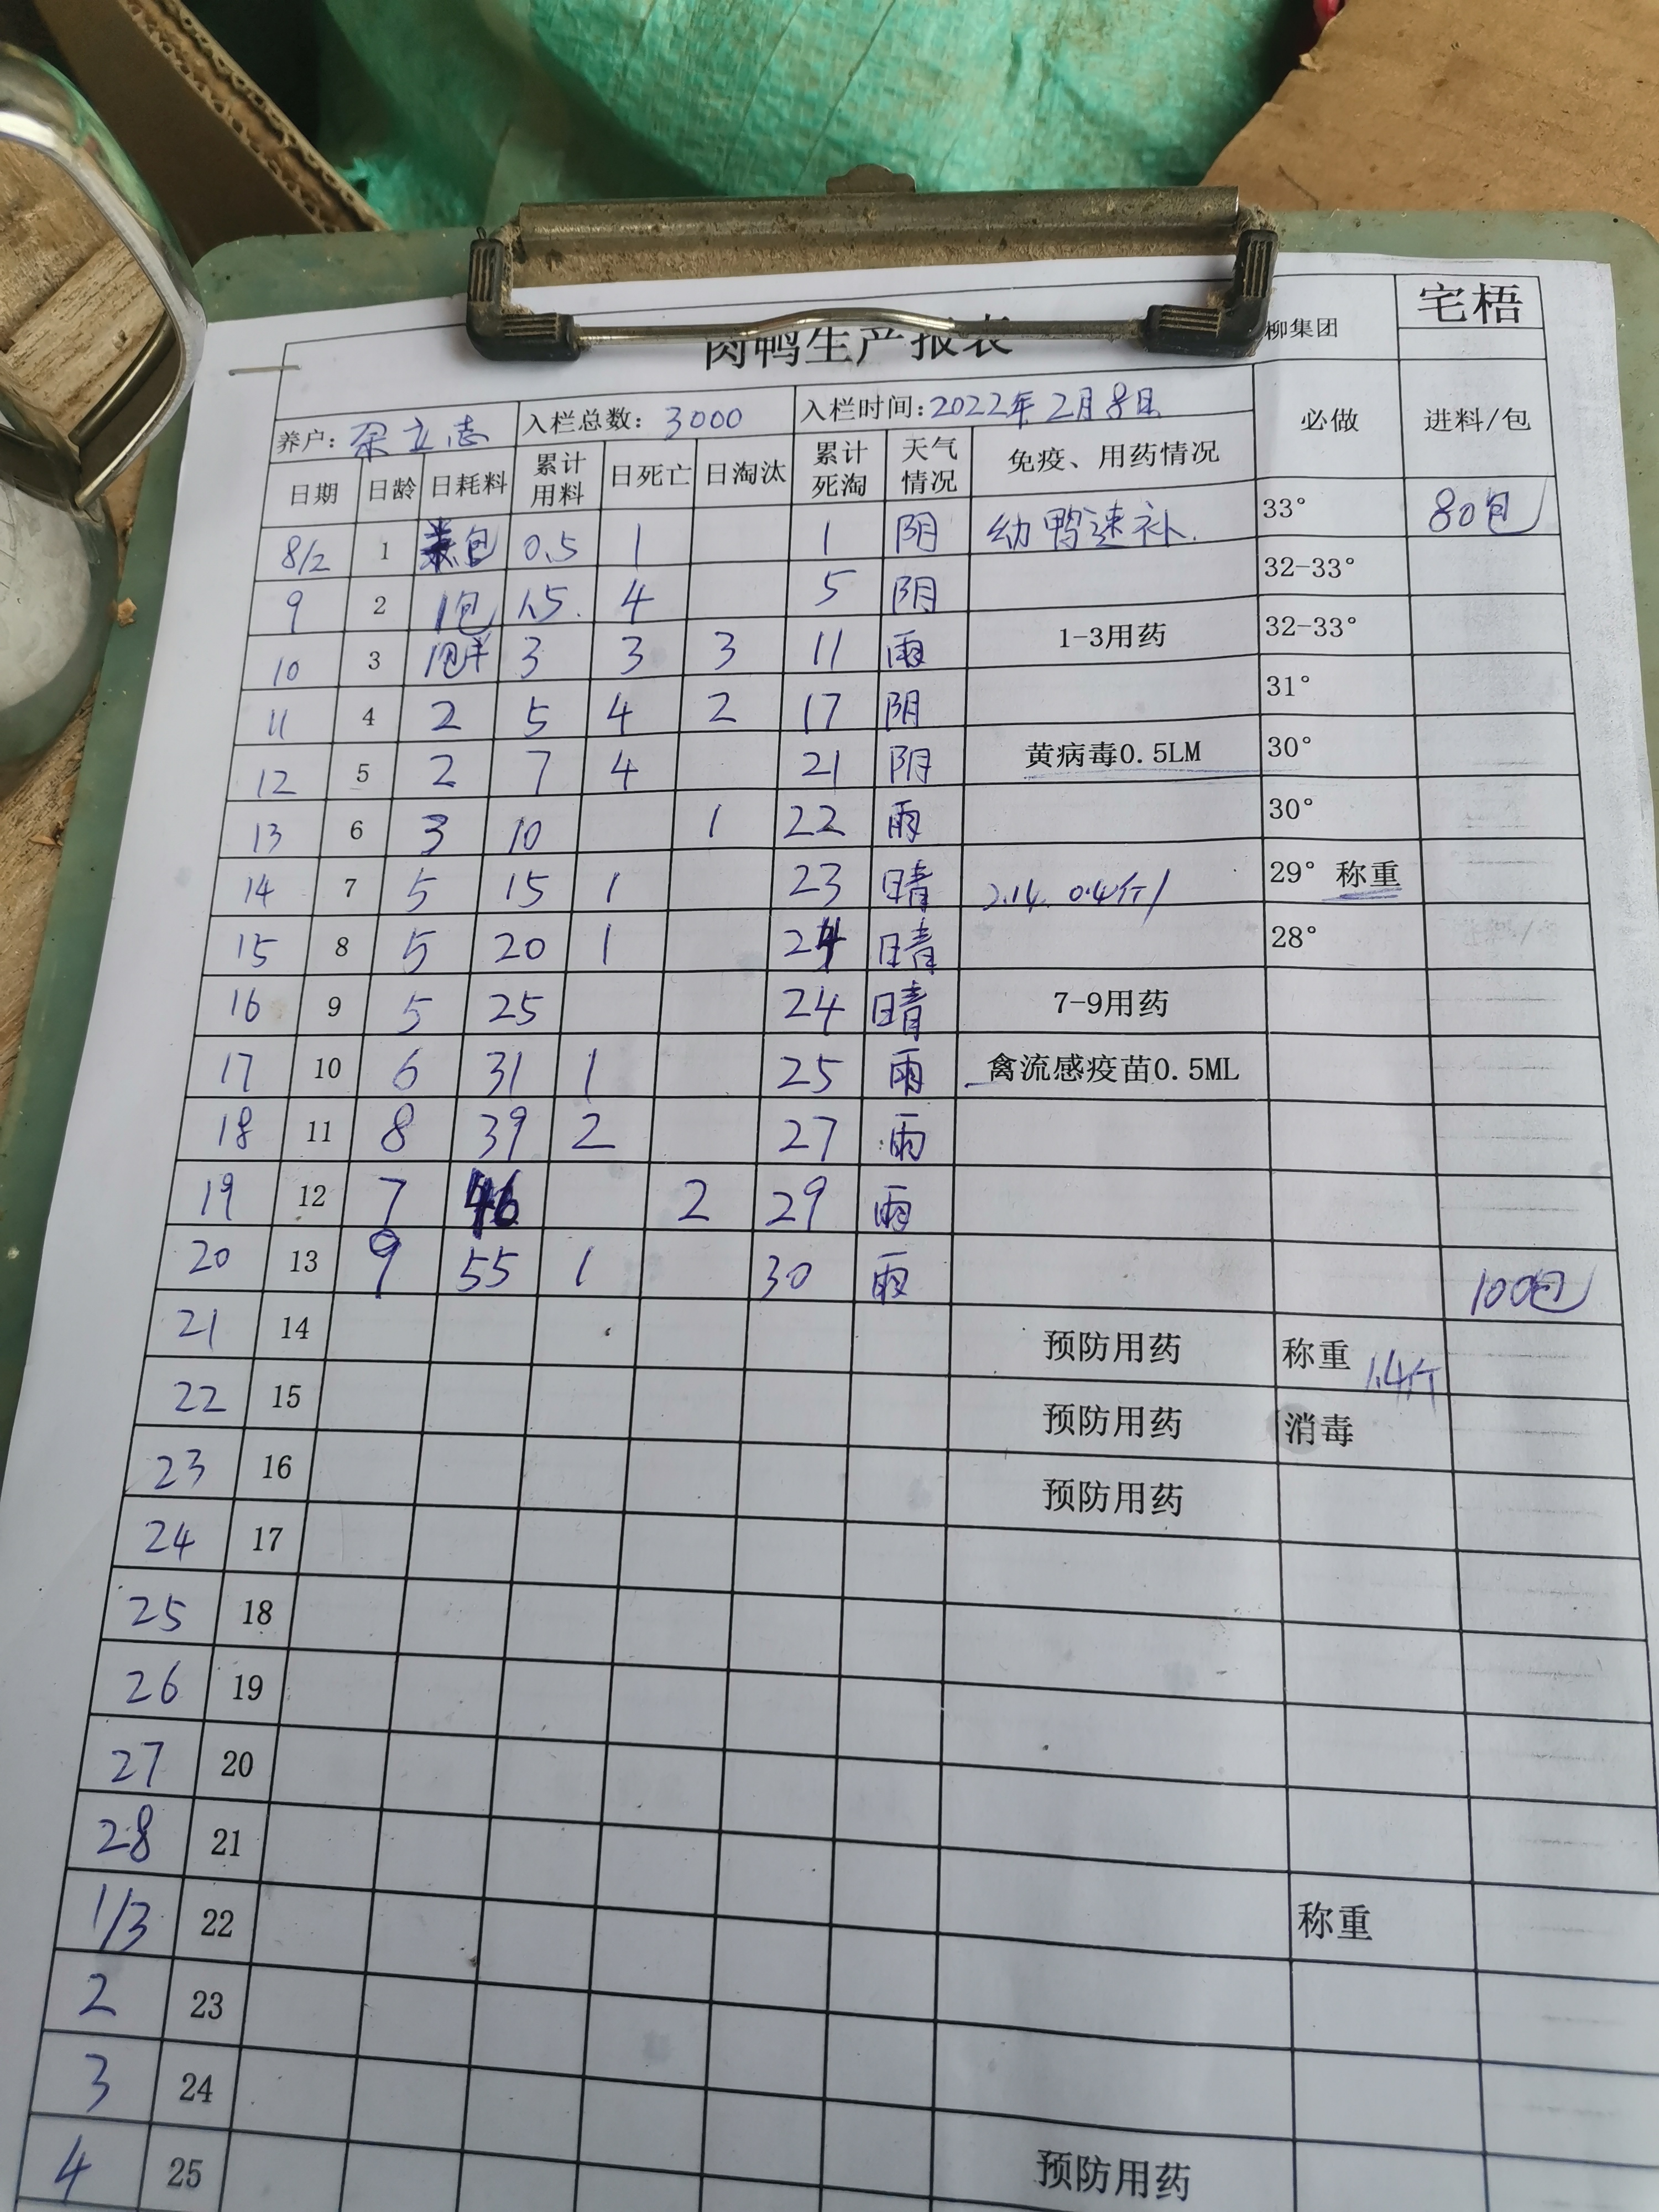 肉鸭生产报表 柳集团 宅梧
养户: 余立志 入栏总数: 3000 入栏时间: 2022年2月8日 必做 进料/包
日期 日龄 日耗料 累计用料 日死亡 日淘汰 累计死淘 天气情况 免疫、用药情况
8/2 1 包 0.5 1 1 阴 幼鸭速补. 33° 80包
9 2 1包 1.5. 4 5 阴 32-33°
10 3 1包半 3 3 3 11 雨 1-3用药 32-33°
11 4 2 5 4 2 17 阴 31°
12 5 2 7 4 21 阴 黄病毒0.5LM 30°
13 6 3 10 1 22 雨 30°
14 7 5 15 1 23 晴 2.14. 0.4斤/ 29° 称重
15 8 5 20 1 24 晴 28°
16 9 5 25 24 晴 7-9用药
17 10 6 31 1 25 雨 禽流感疫苗0.5ML
18 11 8 39 2 27 雨
19 12 7 46 2 29 雨
20 13 9 55 1 30 雨 100包
21 14 预防用药 称重 1.4斤
22 15 预防用药 消毒
23 16 预防用药
24 17
25 18
26 19
27 20
28 21
1/3 22 称重
2 23
3 24
4 25 预防用药